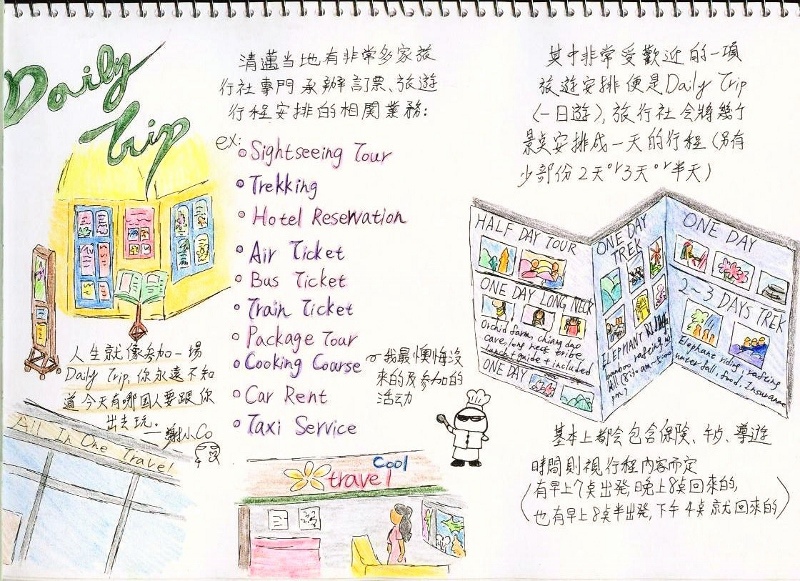 Daily
Trip
清邁当地有非常多家旅
行社專門承辦訂票、旅遊
行程安排的相関業務:
ex:
Sightseeing Tour
Trekking
Hotel Reservation
Air Ticket
Bus Ticket
Train Ticket
Package Tour
Cooking Course
Car Rent
Taxi Service
我最懊悔没
來的及參加的
活动
人生就像參加一場
Daily Trip,你永遠不知
道今天有哪些人要跟你
出去玩。
All In One Travel
Cool
travel
其中非常受歡迎的一項
旅遊安排便是Daily Trip
(一日遊),旅行社会將幾个
景点安排成一天的行程(另有
少部份2天or3天or半天)
HALF DAY TOUR
ONE DAY LONG NECK
Orchid farm, chiang dao
cave, long neck tribe,
lunch + guide + included
ONE DAY
ONE DAY
TREK
ELEPHANT RIDING
ONE DAY
2~3 DAYS TREK
Elephane riding, rafting
water fall, food, Insurance
基本上都会包含保險、午歺、導遊
時間則視行程内容而定
(有早上7点出発,晚上8点回來的,
也有早上8点半出発,下午4点就回來的)